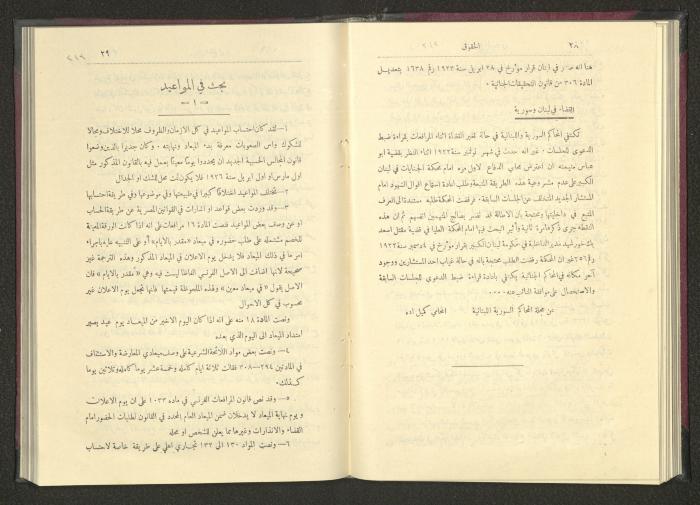 ٢٨
الحقوق
هنا انه صدر في لبنان قرار مؤرخ في ٢٨ ابريل سنة ١٩٢٣ رقم ١٦٣٨ بتعديل
المادة ٣٠٦ من قانون التحقيقات الجنائية .
القضاء في لبنان وسورية
تكتفي المحاكم السورية واللبنانية في حالة تغير القضاة اثناء المرافعات بقراءة ضبط
الدعوى للجلسات . غير انه حدث في شهر نوفمبر سنة ١٩٢٢ اثناء النظر بقضية ابو
عباس منيمنه ان اعترض محامي الدفاع لاول مرة امام محكمة الجنايات في لبنان
الكبير على عدم مشروعية هذه الطريقة المتبعة وطلب اعادة استماع اقوال الشهود امام
المستشار الجديد المتخلف عن الجلسات السابقة . فرفضت المحكمة طلبه مستندة الى العرف
المتبع في داخليتها ومحتجة بان الاطالة قد تضر بصالح المتهمين انفسهم ثم ان هذه
النقطة جرى ذكرها مرة ثانية وأثير البحث فيها امام المحكمة العليا في قضية مقتل اسعد
بك خورشيد مدير الداخلية في حكومة لبنان الكبير بقرار مؤرخ في ٤ دسمبر سنة ١٩٢٢
رقم ٦٥ غير ان المحكمة رفضت الطلب محتجة بانه في حالة غياب احد المستشارين ووجود
آخر مكانه في المحاكم الجنائية يكتفى باعادة قراءة ضبط الدعوى للجلسات السابقة
والاستحصال على موافقة النائب عنه ....
عن مجلة المحاكم السورية اللبنانية
المحامي كميل اده
٢٩
٢١٦
بحث في المواعيد
— ١ —
١— لقد كان احتساب المواعيد في كل الازمان والظروف محلا للاختلاف ومجالا
للشكوك وامس الصعوبات معرفة بدء الميعاد ونهايته . وكان جديرا بالذين وضعوا
قانون المجالس الحسبية الجديد ان يحددوا يوما معينا يعمل فيه بالقانون المذكور مثل
اول مارس او اول ابريل سنة ١٩٢٦ فلا يكون ثمت محل للشك او الجدال
٢— تختلف المواعيد اختلافا كبيرا في طبيعتها وفي موضوعها وفي طريقة احتسابها
٣— وقد وردت بعض قواعد او اشارات في القوانين المصرية عن طريقة الحساب
او عن وصف بعض المواعيد فنصت المادة ١٦ مرافعات على انه اذا كانت الورقة المعلنة
للخصم مشتملة على طلب حضوره في ميعاد «مقدر بالايام» أو على التنبيه عليه باجراء
امر ما في ذلك الميعاد فلا يدخل يوم الاعلان في الميعاد المذكور وهذه الترجمة غير
صحيحة لانها اضافت الى الاصل الفرنسي الفاظا ليست فيه وهي «مقدر بالايام» فان
الاصل يقول «في ميعاد معين» ولهذه الملحوظة قيمتها فانها تجعل يوم الاعلان غير
محسوب في كل الاحوال
ونصت المادة ١٨ منه على انه اذا كان اليوم الاخير من الميعاد يوم عيد يصير
امتداد الميعاد الى اليوم الذي بعده
٤— ونصت بعض مواد اللائحة الشرعية على وصف ميعادي المعارضة والاستئناف
في المادتين ٢٩٤—٣٠٨ فقالت ثلاثة ايام كاملة وخمسة عشر يوما كاملة وثلاثين يوما
كذلك .
٥— وقد نص قانون المرافعات الفرنسي في ماده ١٠٣٣ على ان يوم الاعلان
و يوم نهاية الميعاد لا يدخلان ضمن الميعاد العام المحدد في القانون لطلبات الحضور امام
القضاء والانذارات وغيرها مما يعلن للشخص او محله
٦— ونصت المواد ١٣٠ الى ١٣٢ تجاري اهلي على طريقة خاصة لاحتساب